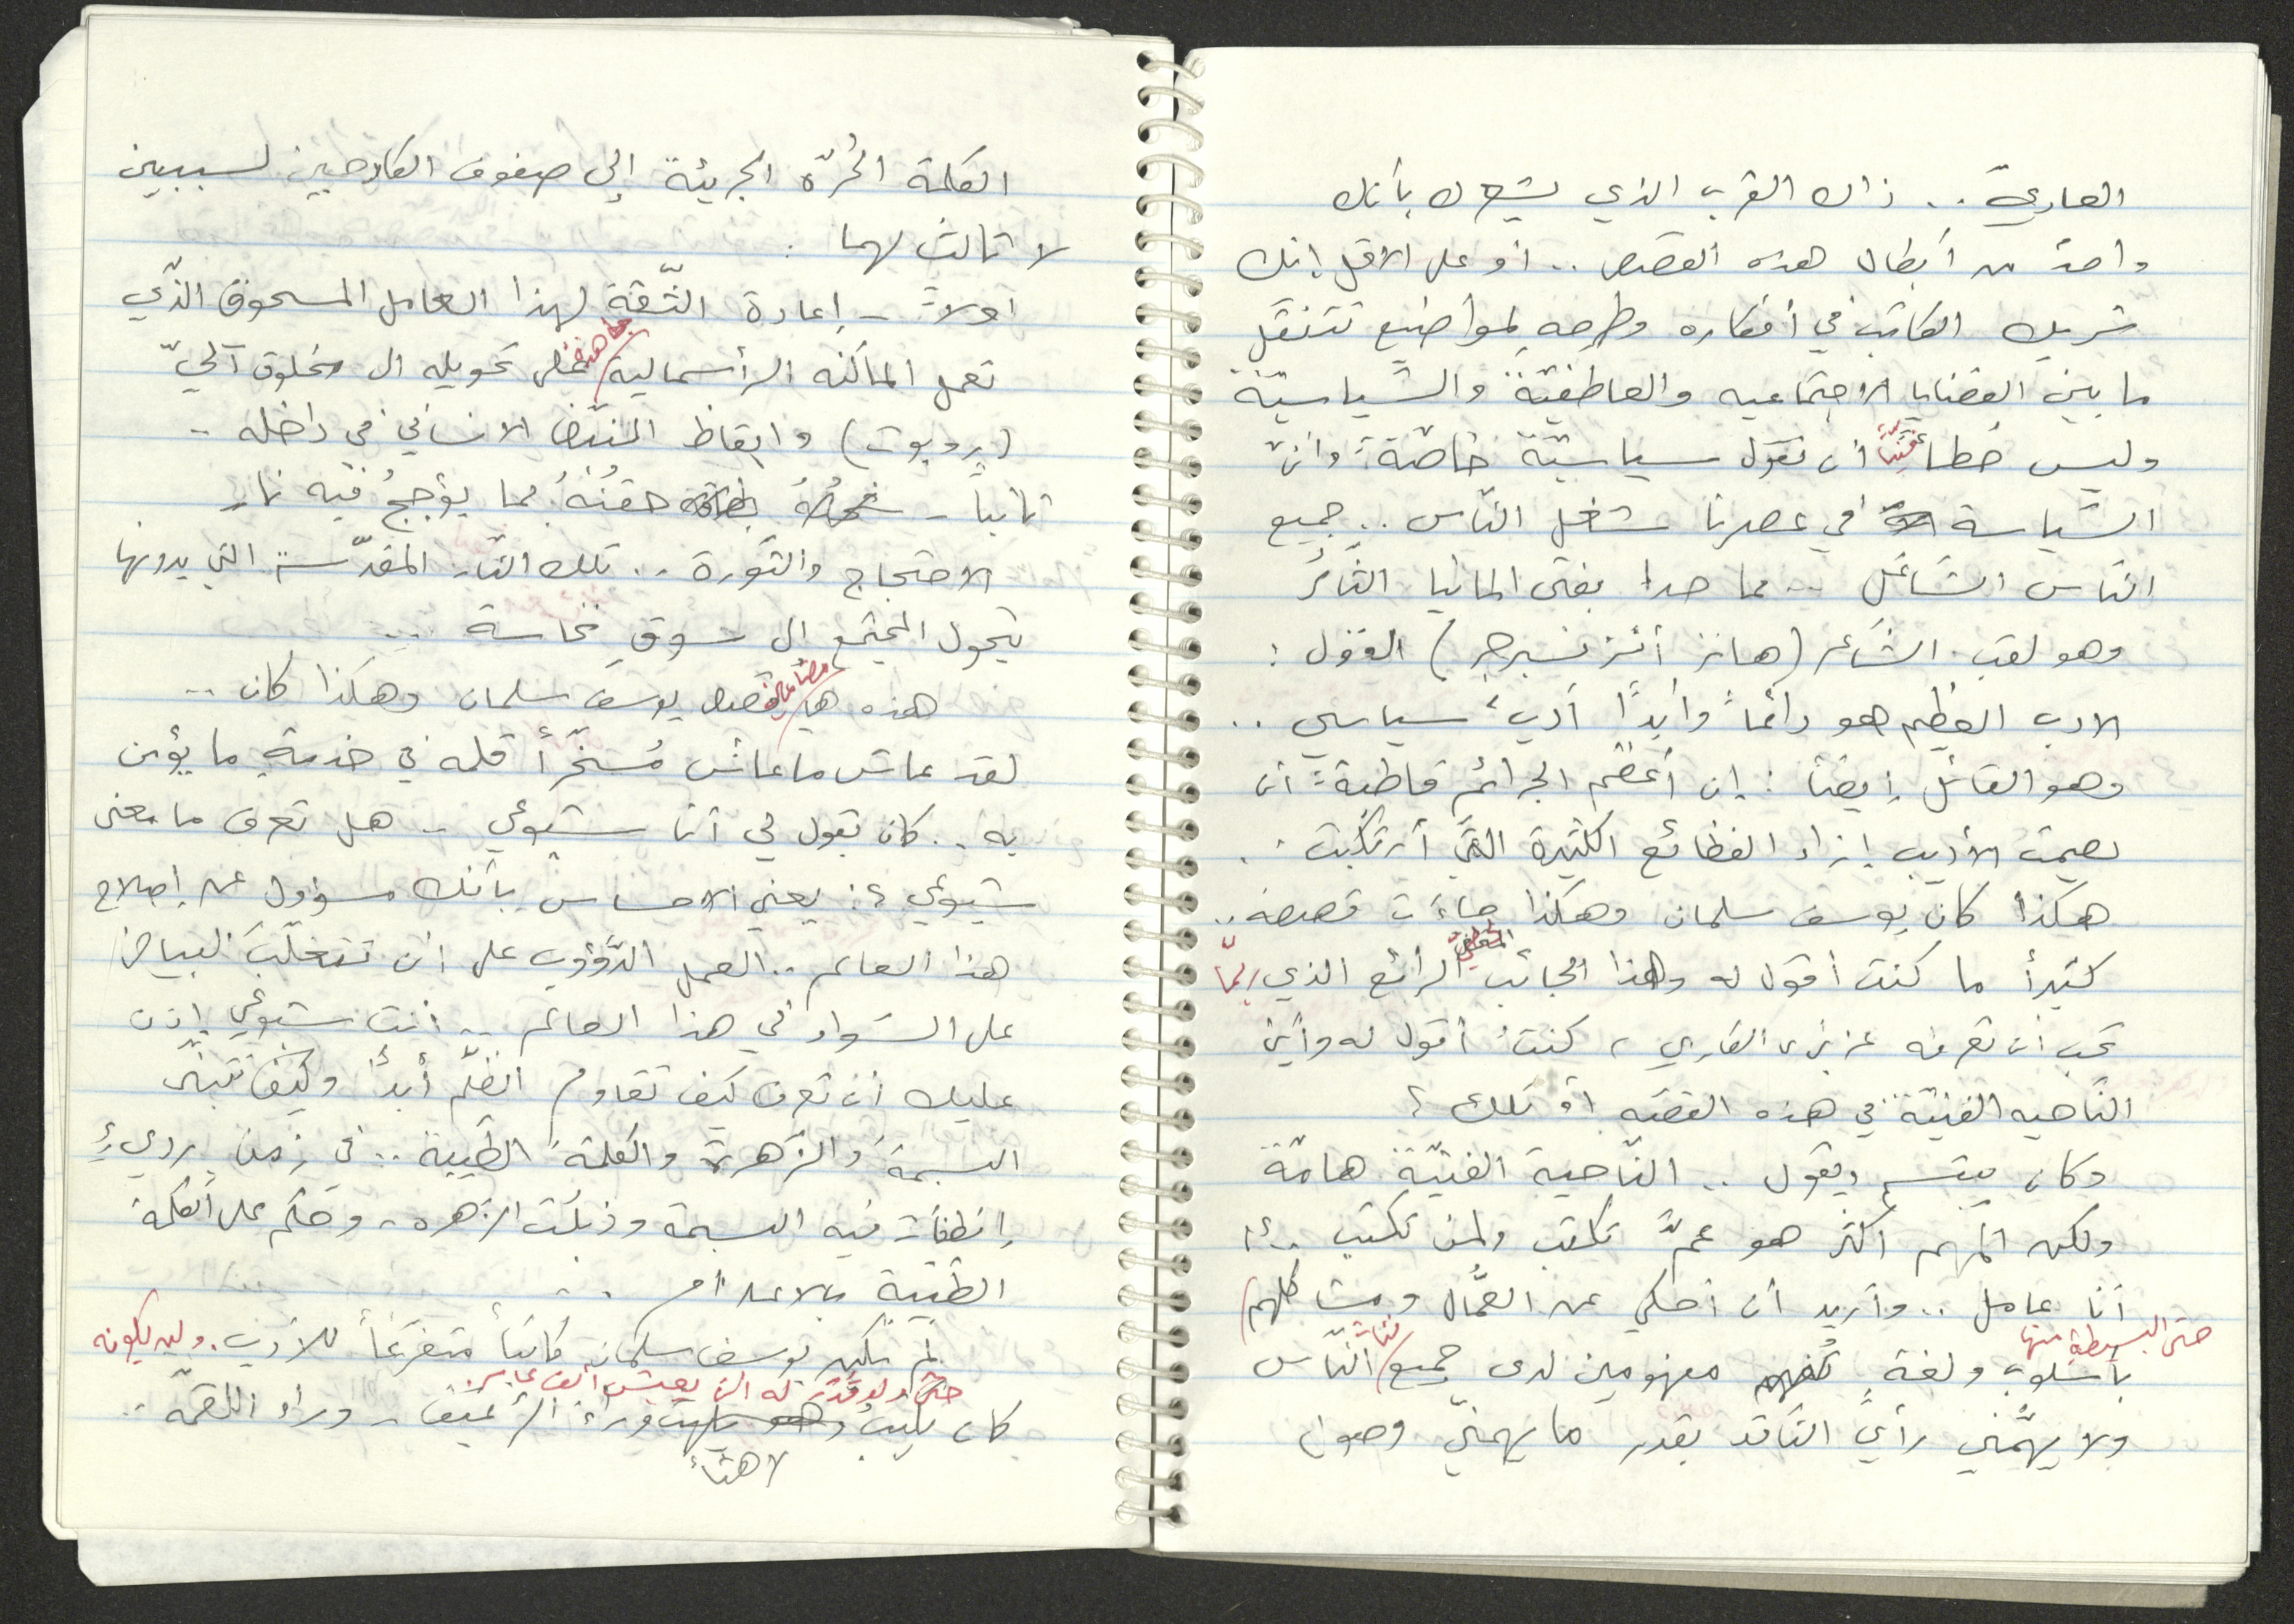 العاديّ .. ذاك القرب الذي يشعرك بأنك
واحدٌ من أبطال هذه القصص .. أو على الاقل إنك
شريك الكاتب في أفكاره وطرحه لمواضيع تتنقل
ما بين القضايا الاجتماعيه والعاطفيّة والسّياسيّة
وليس خطأً أن نقول سياسيّة خاصّة وانّ
السّياسة في عصرنا شغل النّاس .. جميع
النّاس الشّاغل .. مما حدا بفتى المانيا الثّائر
وهو لقب الشّاعر (هانز أنزنسبرجر) القول :
الادب العظيم هو دائماً وأبداً أدبٌ سياسي ..
وهو القائل إيضاً : إن أعظم الجرائم قاطبة : أن
يصمت الأديب إزاء الفظائع الكثيرة التي أرتكبت ..
هكذا كان يوسف سلمان وهكذا جاءَت قصصه ..
كثيراً ما كنت أقول له وهذا الجانب الرائع الذي ربّما
تحب أن تعرفه عزيزي القاري ، كنتُ أقول له وأين
النّاحيه الفنيّة في هذه القصّه أو تلك ؟
وكان يبتسم ويقول .. النّاحية الفنيّة هامّة
ولكن المهم اكثر هو عمَّ تكتب ولمن تكتب ..؟!
أنا عامل .. وأريد أن أحكي عن العمَّال ومشاكلهم
حتى البسيطة منها
بأسلوب ولغةٍ مفهومين لدى جميع فئات النّاس
ولا يهمّني رأيَ النّاقد بقدر ما يهمنيّ وصول
الكلمة الحُرّة الجريئة إلى صفوف الكادحين لسببين
لا ثالث لهما :
اولاً - إعادة الثّقة لهذا العامل المسحوق الذّي
تعمل الماكنه الرأسمالية جاهدة على تحويله الى مخلوق آليّ
(روبوت) وايقاظ النبّض الانساني في داخله ..
ثانياً - حقنُهُ بما يؤجج فيه نار
الاحتجاج والثّورة .. تلك النّار المقدّسة التي بدونها
يتحول المجتمع الى سوق نخاسة ..
هذه هي قصص يوسف سلمان وهكذا كان ..
لقد عاش ما عاش مُسخّراً قلمه في خدمةِ ما يؤمن
به .. كان يقول لي أنا شيوعي - هل تعرف ما معنى
شيوعي ؟: يعني الاحساس بأنك مسؤول عن إصلاح
هذا العالم .. العمل الدَّؤوب على أن تتغلّبَ البياض
على السّواد في هذا العالم .. أنت شيوعي إذن
عليك أن تعرف كيف تقاوم الظّلم أبداً وكيف تتبنّى
البسمةَ والزّهرة والكلمةَ الطّيبة .. في زمن رديءٍ
إنطفأت فيه البسمة وذبلت الزهره ، وحُكم على الكلمة
الطّيبة بالاعدام ..
لم يكن يوسف سلمان كاتباً متفرغاً للأدب. ولن يكونه
حتى ولو قُدّر له أن يعيش ألف عام.
كان يكتبُ لاهثاً وراء الرّغيف ، وراء اللقمّة ..